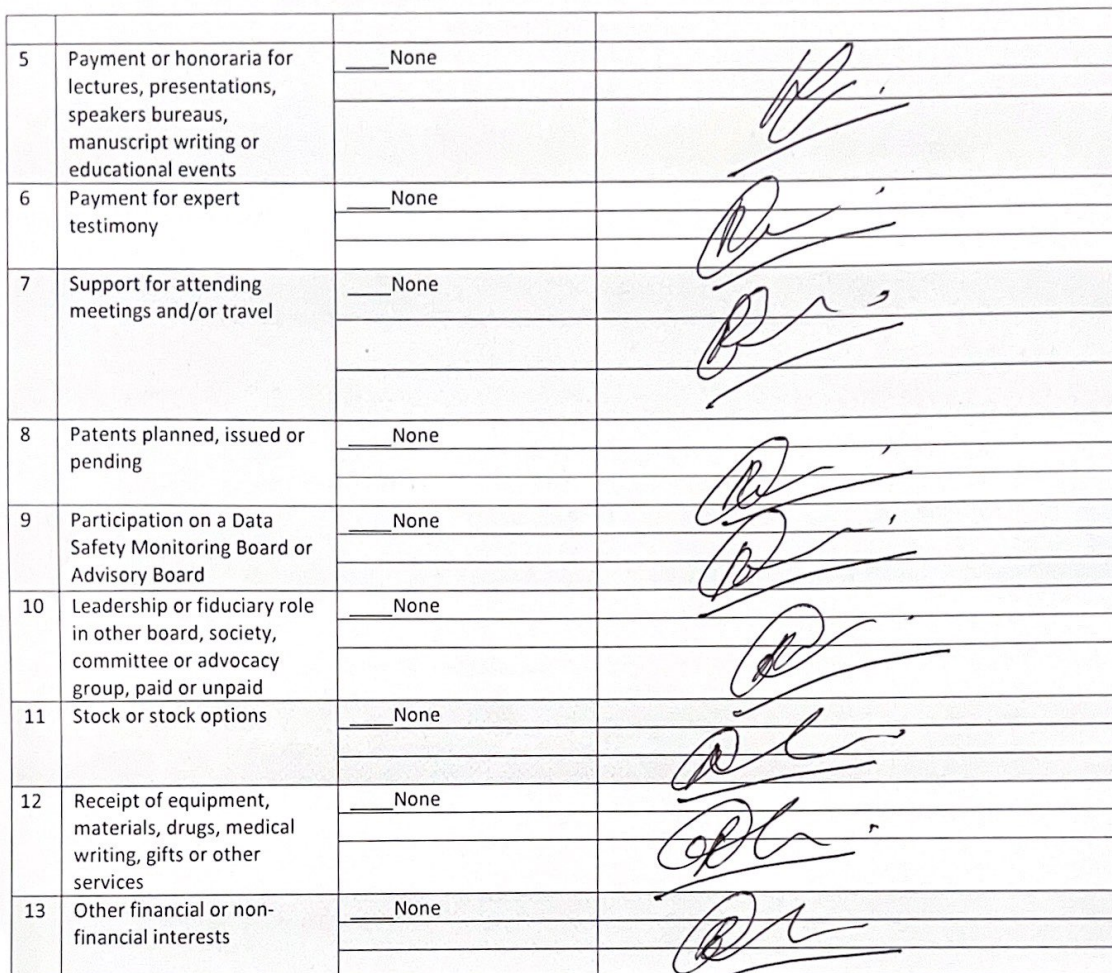 5 Payment or honoraria for ____None
lectures, presentations,
speakers bureaus,
manuscript writing or
educational events
6 Payment for expert ____None
testimony
7 Support for attending ____None
meetings and/or travel
8 Patents planned, issued or ____None
pending
9 Participation on a Data ____None
Safety Monitoring Board or
Advisory Board
10 Leadership or fiduciary role ____None
in other board, society,
committee or advocacy
group, paid or unpaid
11 Stock or stock options ____None
12 Receipt of equipment, ____None
materials, drugs, medical
writing, gifts or other
services
13 Other financial or non- ____None
financial interests